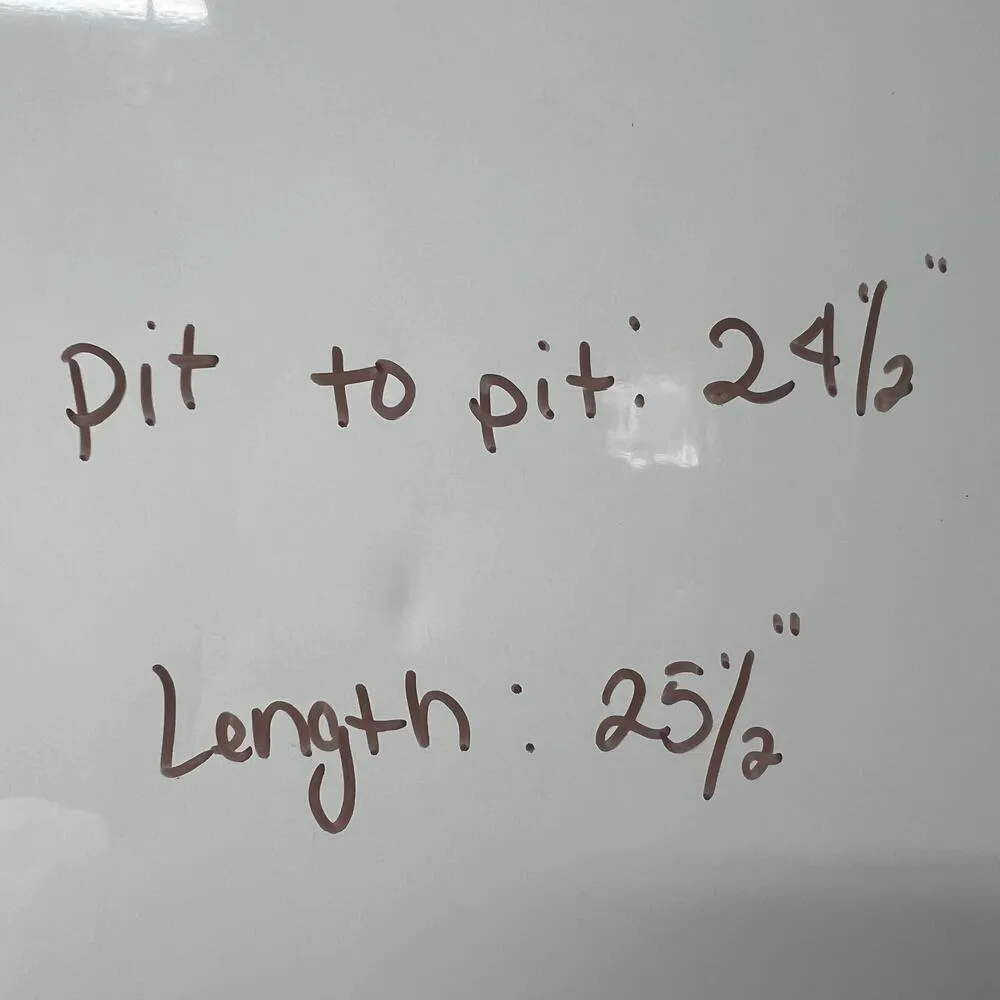 pit to pit: 24 1/2"
Length: 25 1/2"